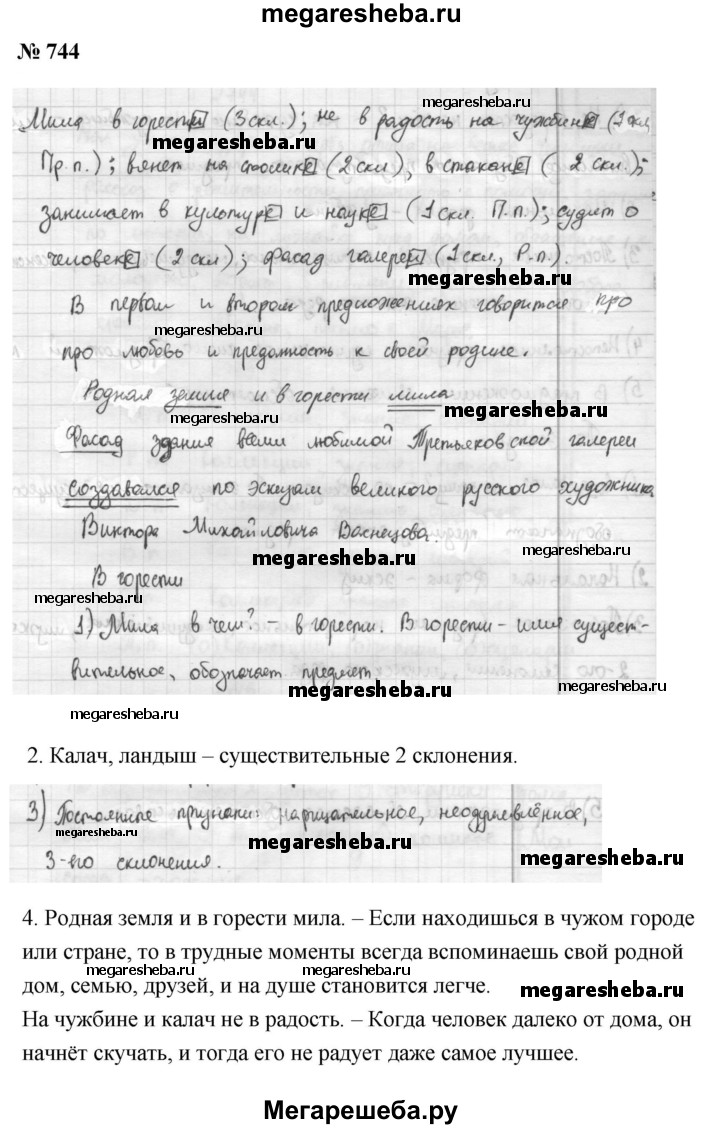 megaresheba.ru
№ 744
megaresheba.ru
Мила в горести (3 скл.); не в радость на чужбине (1 скл,
megaresheba.ru
Пр.п.); вянет на столике (2 скл.), в стакане (2 скл.);
занимает в культуре и науке (1 скл. П.п.); судит о
человеке (2 скл); фасад галереи (1 скл., Р.п.).
megaresheba.ru
В первом и втором предложениях говорится про
megaresheba.ru
про любовь и преданность к своей родине.
Родная земля и в горести мила
megaresheba.ru megaresheba.ru
Фасад здания всеми любимой Третьяковской галереи
создавался по эскизам великого русского художника
Виктора Михайловича Васнецова.
megaresheba.ru
В горести
megaresheba.ru
1) Мила в чем? – в горести. В горести – имя сущест-
вительное, обозначает предмет.
megaresheba.ru megaresheba.ru
megaresheba.ru
2. Калач, ландыш – существительные 2 склонения.
3) Постоянные признаки: нарицательное, неодушевлённое,
megaresheba.ru megaresheba.ru
3-его склонения.
megaresheba.ru
4. Родная земля и в горести мила. – Если находишься в чужом городе
или стране, то в трудные моменты всегда вспоминаешь свой родной
megaresheba.ru
дом, семью, друзей, и на душе становится легче.
megaresheba.ru
На чужбине и калач не в радость. – Когда человек далеко от дома, он
начнёт скучать, и тогда его не радует даже самое лучшее.
Мегарешеба.ру